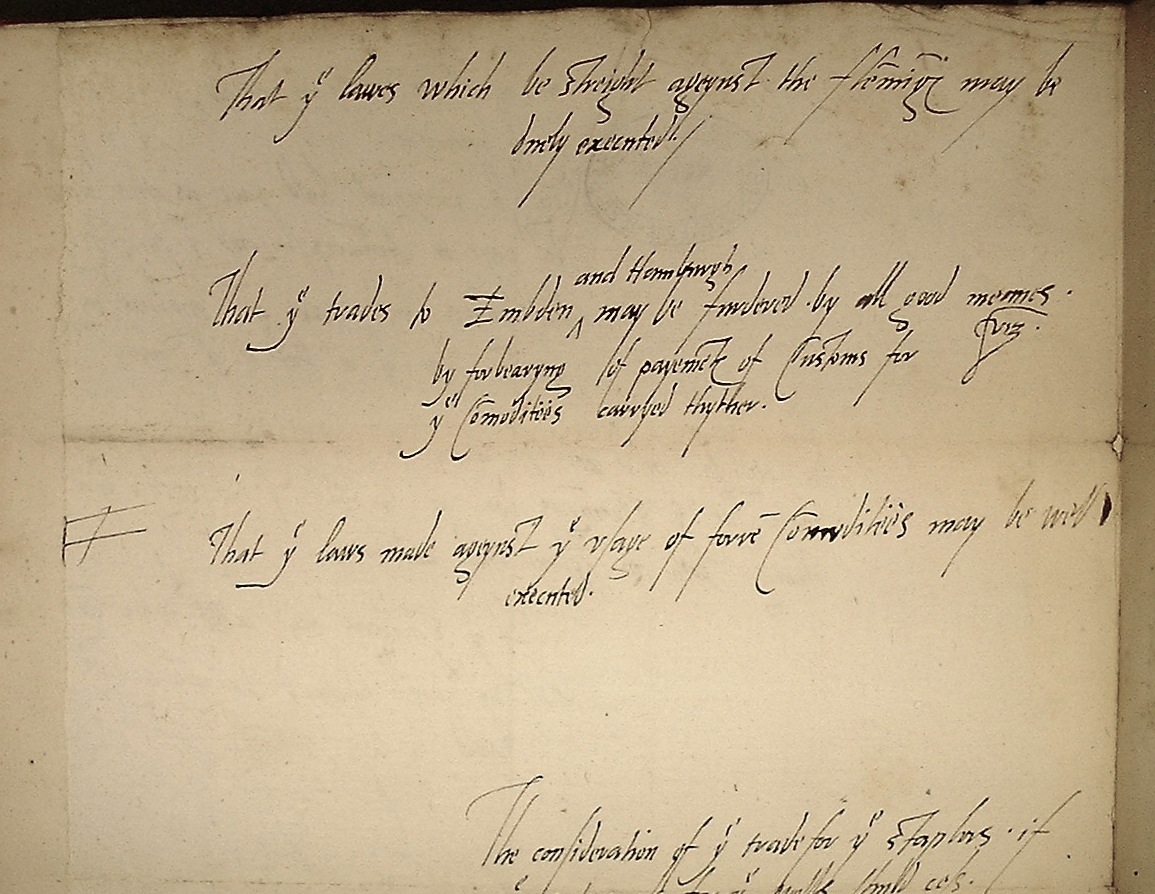 That yͤ lawes which be streight ageynst the flem̄ig̃ may be
duely executed./
and Hamburgh
That yͤ trades to Embden ‸ may be furdered by all good meanes.
viz.
by forbearyng of payem̄t of Customs for
yͤ Com̄oditees carryed thyther.
That yͤ laws made ageynst yͤ vsage of forrē Com̄oditees may be well
executed.
The consideration of yͤ trade for yͤ staplers . if
shuld ces.